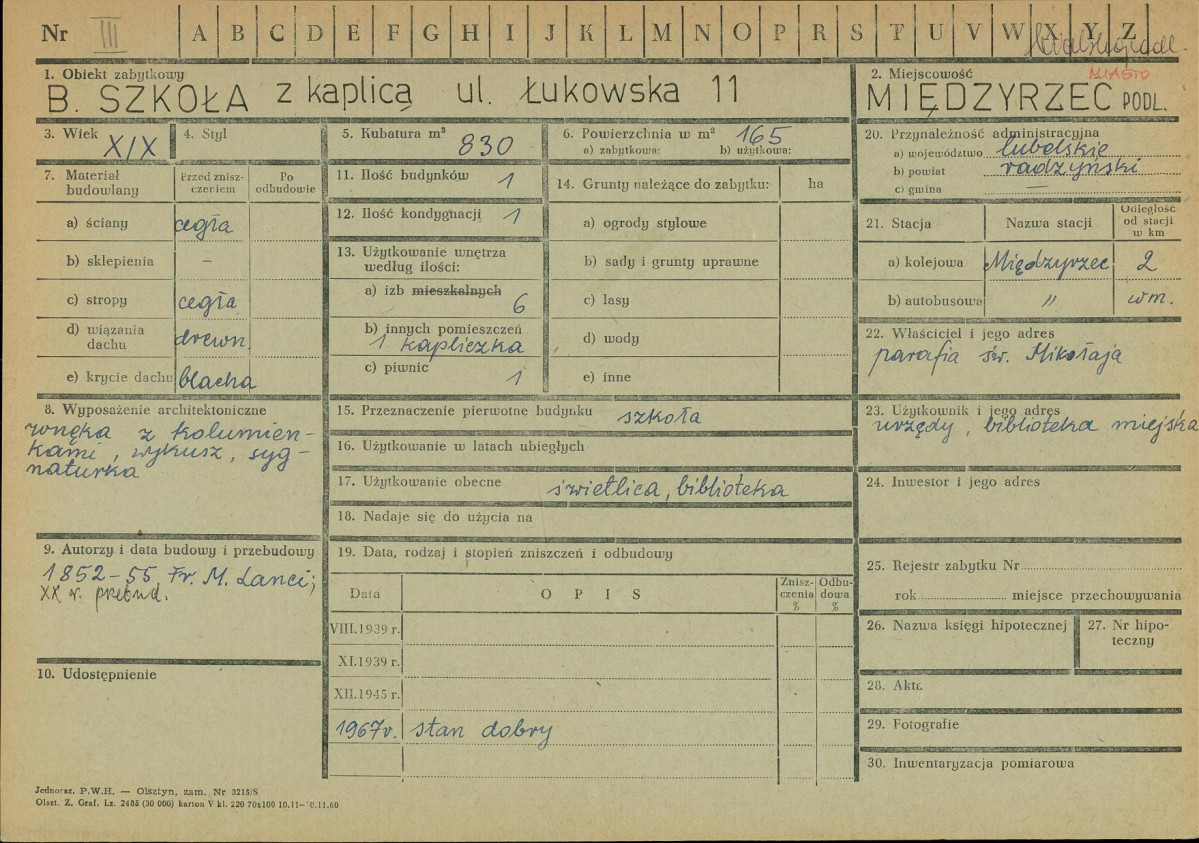 Nr III A B C D E F G H I J K L M N O P R S T U V W X Y Z
1. Obiekt zabytkowy
B. SZKOŁA z kaplicą ul. Łukowska 11
2. Miejscowość MIASTO
MIĘDZYRZEC PODL.
3. Wiek XIX
4. Styl
5. Kubatura m³ 830
6. Powierzchnia w m² 165
a) zabytkowa: b) użytkowa:
7. Materiał budowlany
Przed znisz-
czeniem
Po
odbudowie
a) ściany cegła
b) sklepienia –
c) stropy cegła
d) wiązania
dachu drewn.
e) krycie dachu blacha
8. Wyposażenie architektoniczne
wnęka z kolumien-
kami, wykusz, syg-
naturka
9. Autorzy i data budowy i przebudowy
1852–55, Fr. M. Lanci;
XX w. przebud.
10. Udostępnienie
11. Ilość budynków 1
12. Ilość kondygnacji 1
13. Użytkowanie wnętrza
według ilości:
a) izb mieszkalnych 6
b) innych pomieszczeń
1 kapliczka
c) piwnic 1
14. Grunty należące do zabytku: ha
a) ogrody stylowe
b) sady i grunty uprawne
c) lasy
d) wody
e) inne
15. Przeznaczenie pierwotne budynku szkoła
16. Użytkowanie w latach ubiegłych
17. Użytkowanie obecne świetlica, biblioteka
18. Nadaje się do użycia na
19. Data, rodzaj i stopień zniszczeń i odbudowy
Data O P I S
Znisz-
czenia
%
Odbu-
dowa
%
VIII.1939 r.
XI.1939 r.
XII.1945 r.
1967r. stan dobry
20. Przynależność administracyjna
a) województwo lubelskie
b) powiat radzyński
c) gmina —
21. Stacja Nazwa stacji
Odległość
od stacji
w km
a) kolejowa Międzyrzec 2
b) autobusowa " wm.
22. Właściciel i jego adres
parafia św. Mikołaja
23. Użytkownik i jego adres
urzędy, biblioteka miejska
24. Inwestor i jego adres
25. Rejestr zabytku Nr
rok miejsce przechowywania
26. Nazwa księgi hipotecznej
27. Nr hipo-
teczny
28. Akta
29. Fotografie
30. Inwentaryzacja pomiarowa
Jednoraz. P.W.H. — Olsztyn, zam. Nr 3215/S
Olszt. Z. Graf. Lz. 2485 (30 000) karton V kl. 220 70x100 10.11—